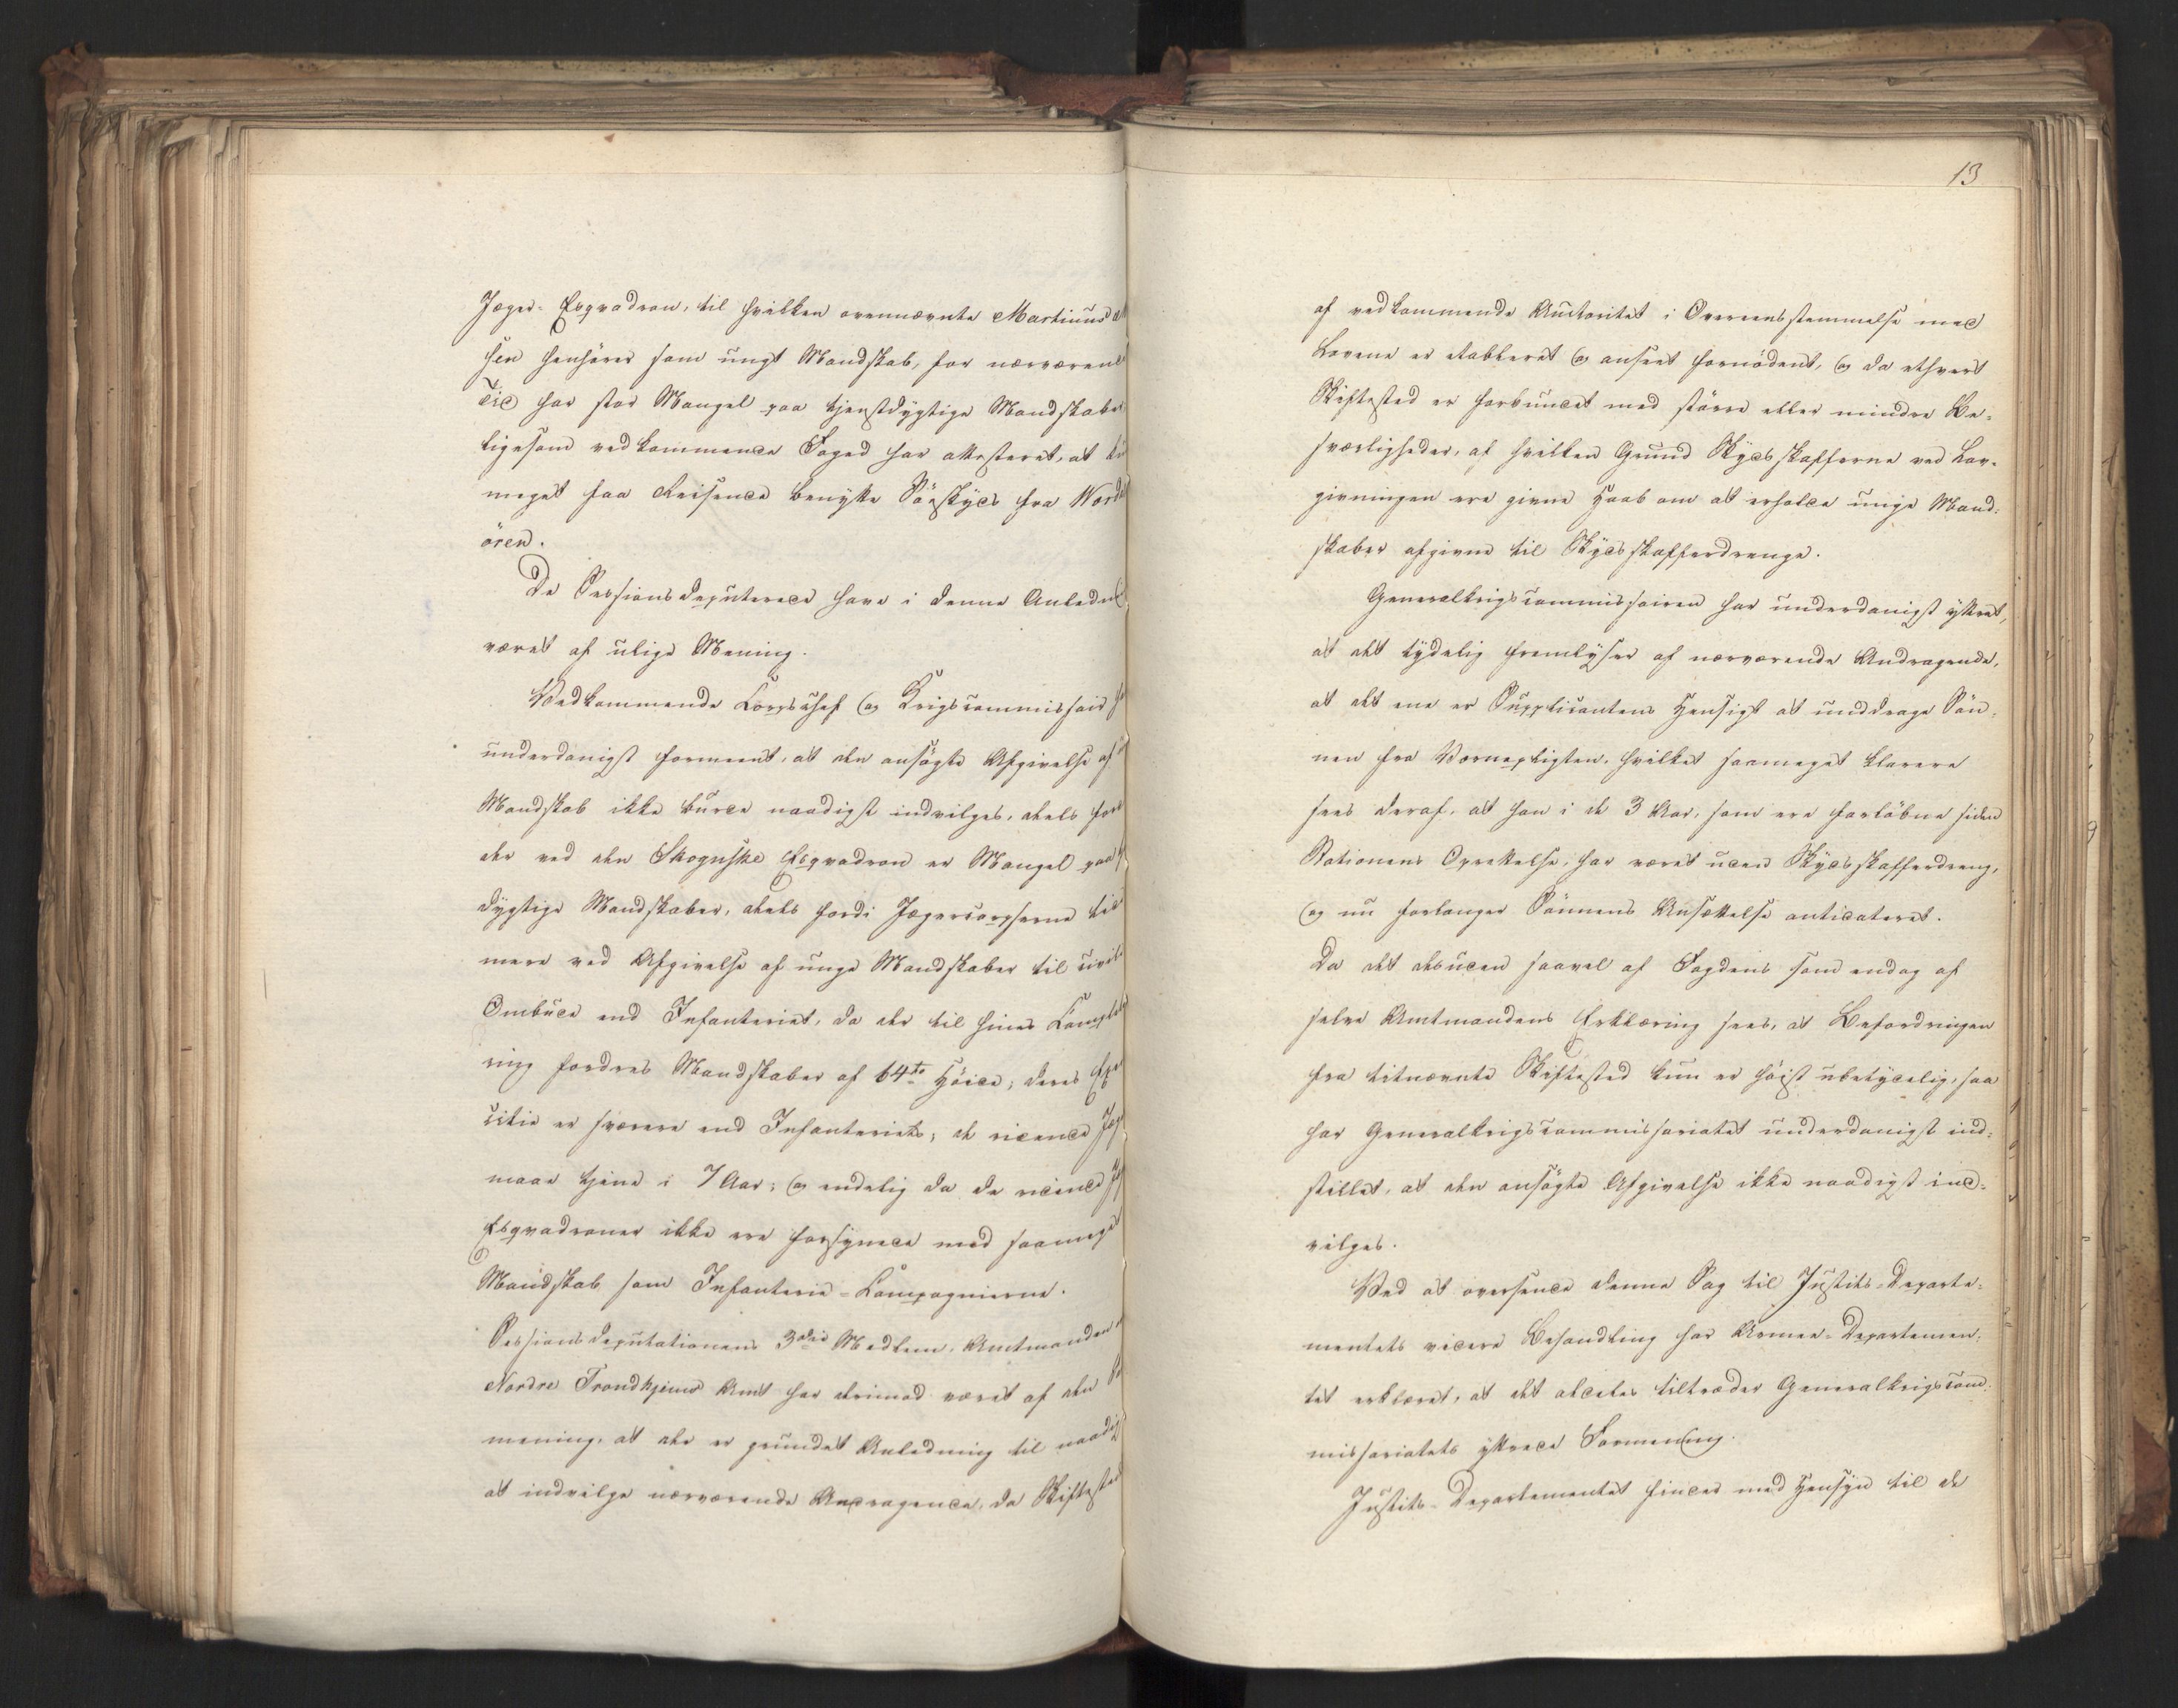 Jæger-Esqvadron, til hvilken ovennævnte Martinus
sen henhører som ungt Mandskab, for nærværende
Tid har stor Mangel paa tjenstdygtige Mandskaber
ligesom vedkommende Foged har attesteret, at
meget faa Reisende benytte Søeskyds fra Værdal
øren.
De Sessionsdeputerede have i denne Anledni
været af ulige Mening.
Vedkommende Corpschef og Krigscommissair
underdanigst formeent, at den ansøgte Afgivelse af
Mandskab ikke burde naadigst indvilges, deels fordi
der ved den Skognske Esqvadron er Mangel paa
dygtige Mandskaber, deels fordi Jægercorpserne lide
mere ved Afgivelse af unge Mandskaber til civile
Ombude end Infanteriet, da der til hines Complet
ring fordres Mandskaber af 64to Høide; deres Exer
citie er sværere end Infanteriets; de ridende Jæg
maae tjene i 7 Aar; og endelig da de ridende Jæg
Esqvadroner ikke ere forsynede med saameget
Mandskab som Infanterie-Compagnierne.
Sessionsdeputationens 3die Medlem, Amtmanden
Nordre Trondhjems Amt har derimod været af den
mening, at der er grundet Anledning til naadig
at indvilge nærværende Andragende, da Skiftested
13
af vedkommende Autoritet i Overeensstemmelse med
Lovene er etableret og anseet fornødent, og da ethvert
Skiftested er forbundet med større eller mindre Be-
sværligheder, af hvilken Grund Skydsskafferne ved Lov-
givningen ere givne Haab om at erholde unge Mand-
skaber afgivne til Skydsskafferdrenge.
Generalkrigscommissairen har underdanigst yttret,
at det tydelig fremlyser af nærværende Andragende,
at det ene er Supplicantens Hensigt at unddrage Søn-
nen fra Vernepligten, hvilket saameget klarere
sees deraf, at han i de 3 Aar, som ere forløbne siden
Stationens Oprettelse, har været uden Skydsskafferdreng,
og nu forlanger Sønnens Ansættelse antidateret.
Da det desuden saavel af Fogdens som endog af
selve Amtmandens Erklæring sees, at Befordringen
fra bitnævnte Skiftested kun er høist ubetydelig, saa
har Generalkrigscommissariatet underdanigst ind-
stillet, at den ansøgte Afgivelse ikke naadigst ind-
vilges.
Ved at oversende denne Sag til Justits-Departe-
mentets videre Behandling har Armee-Departemen-
tet erklæret, at det aldeles tiltræder Generalkrigscom-
missariatets yttrede Formening.
Justits-Departementet finder med Hensyn til de